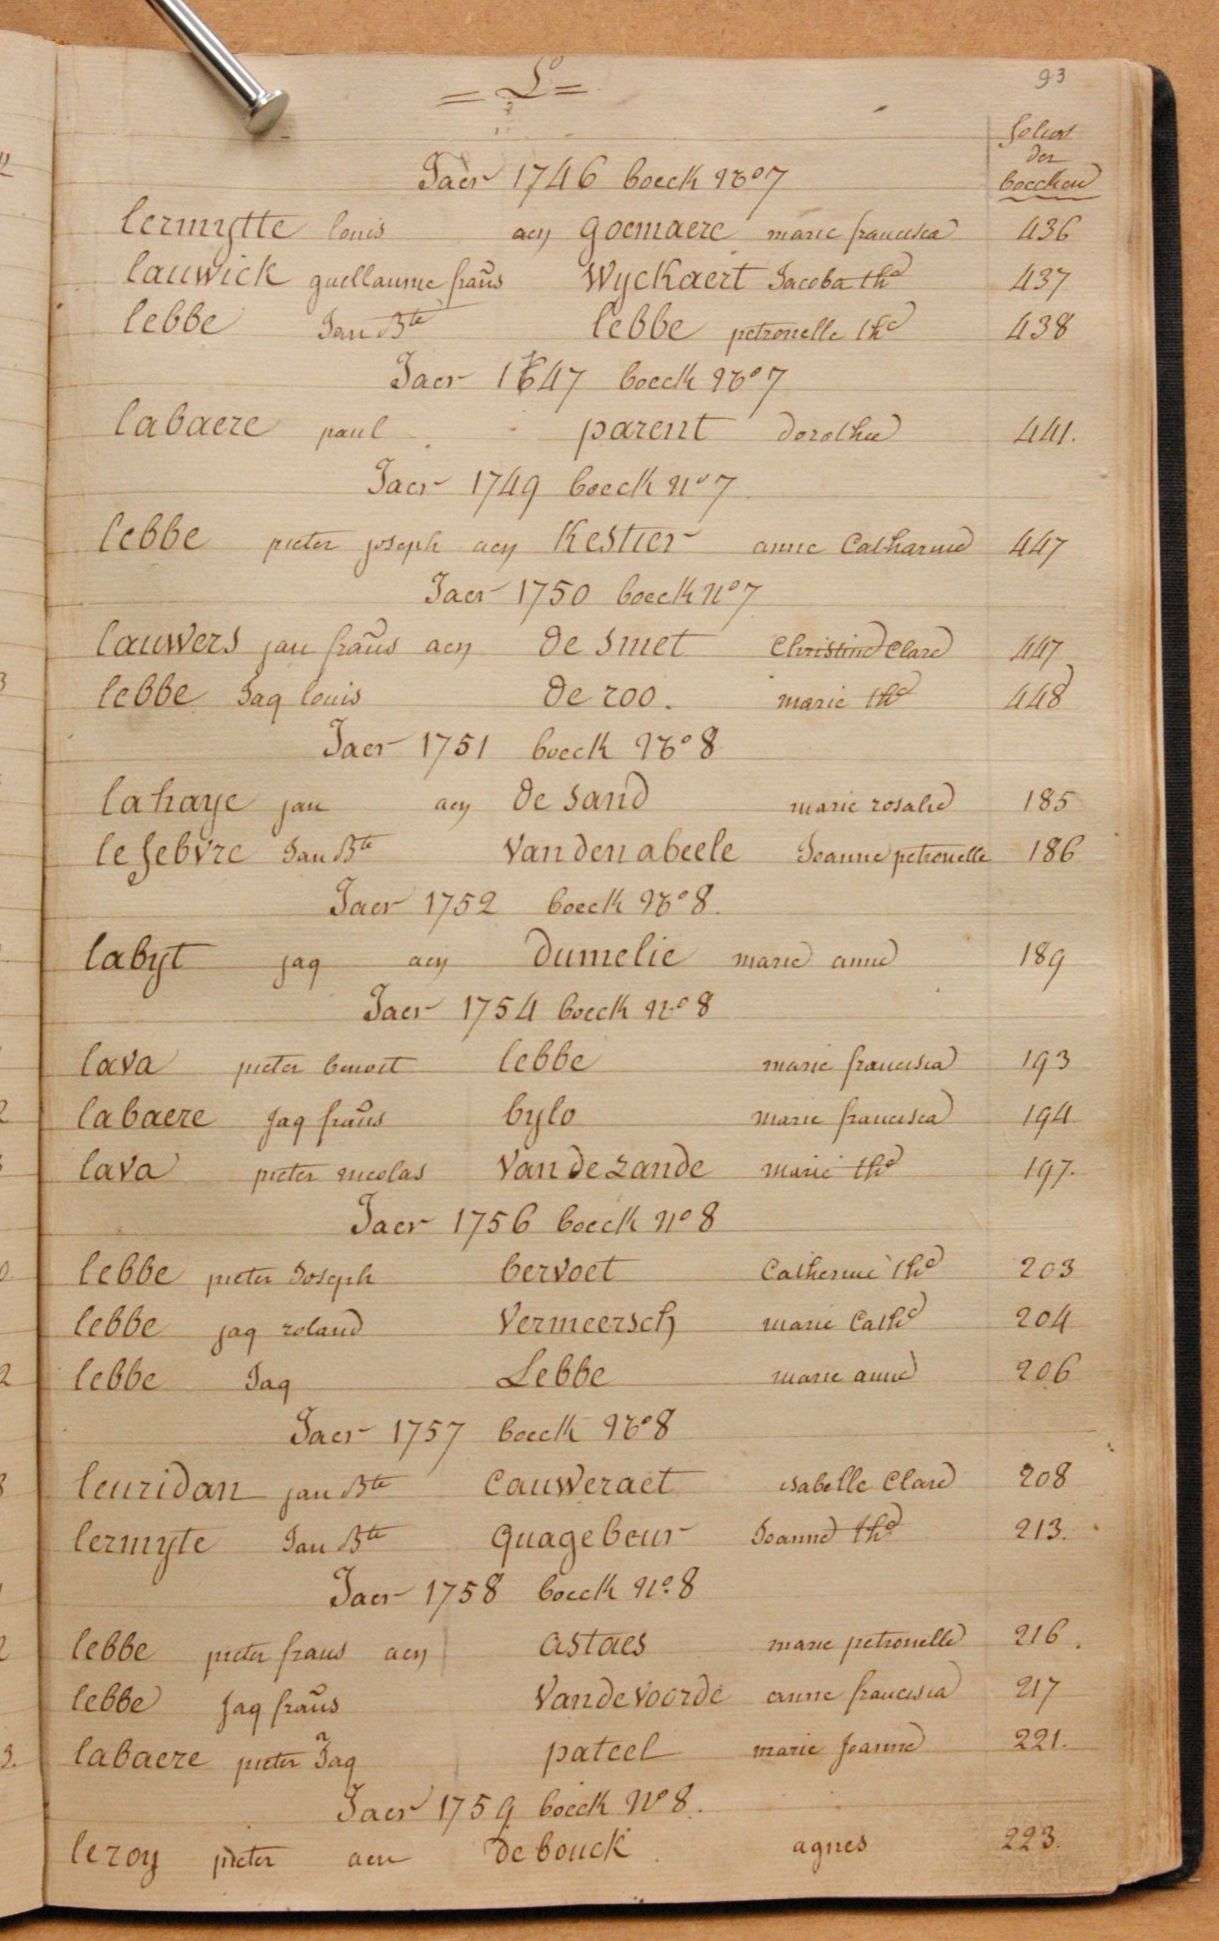 = L =
93
folios
der
boecken
Jaer 1746 boeck No 7
lermytte louis aen goemaere marie francisca 436
lauwick guellaume frans Wyckaert Jacoba the 437
lebbe Jan Bte lebbe petronelle the 438
Jaer 1747 boeck No 7
labaere paul parent dorothee 441.
Jaer 1749 boeck No 7
lebbe pieter joseph aen Kestier anne Catharine 447
Jaer 1750 boeck No 7
lauwers jan frans aen de smet Christine Clare 447
lebbe Jaq louis de roo. marie the 448
Jaer 1751 boeck No 8
lahaye jan aen de sand marie rosalie 185
lefebvre Jan Bte Vanden abeele Joanne petronelle 186
Jaer 1752 boeck No 8.
labyt jaq aen dumelie marie anne 189
Jaer 1754 boeck No 8
lava pieter benoit lebbe marie francisca 193
labaere Jaq frans bylo marie francisca 194
lava pieter nicolas Van de zande marie the 197.
Jaer 1756 boeck No 8
lebbe pieter Joseph bervoet Catherine the 203
lebbe jaq roland Vermeersch marie Cathe 204
lebbe Jaq Lebbe marie anne 206
Jaer 1757 boeck No 8
leuridan jan Bte Cauweraet isabelle Clare 208
lermyte Jan Bte quagebeur Joanne the 213.
Jaer 1758 boeck No 8
lebbe pieter frans aen astaes marie petronelle 216.
lebbe Jaq frans Vandevoorde anne francisca 217
labaere pieter Jaq pateel marie Joanne 221.
Jaer 1759 boeck No 8.
leroy pieter aen de bouck agnes 223.